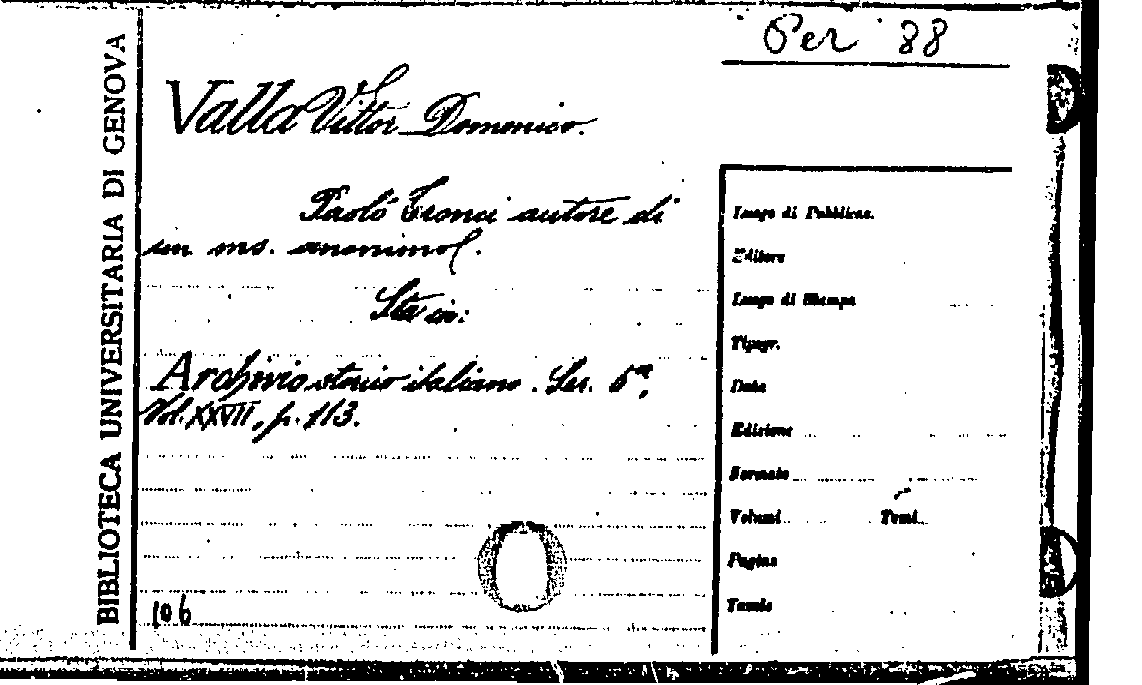 Per 88
BIBLIOTECA UNIVERSITARIA DI GENOVA
Valla Vittor Domenico.
Paolo Tronci autore di
un ms. anonimo.
Sta in:
Archivio storico italiano. Ser. 5ª,
Vol. XXVII, p. 113.
106
Luogo di Pubblicaz.
Editore
Luogo di Stampa
Tipogr.
Data
Edizione
Formato
Volumi Tomi
Pagine
Tavole